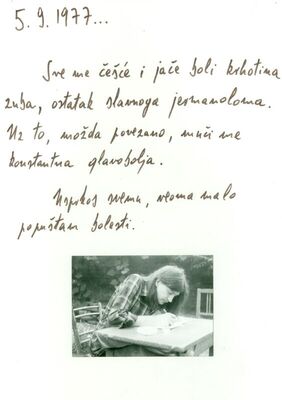 5. 9. 1977...
Sve me češće i jače boli krhotina
zuba, ostatak slavnoga jermanoloma.
Uz to, možda povezano, muči me
konstantna glavobolja.
Usprkos svemu, veoma malo
popuštam bolesti.